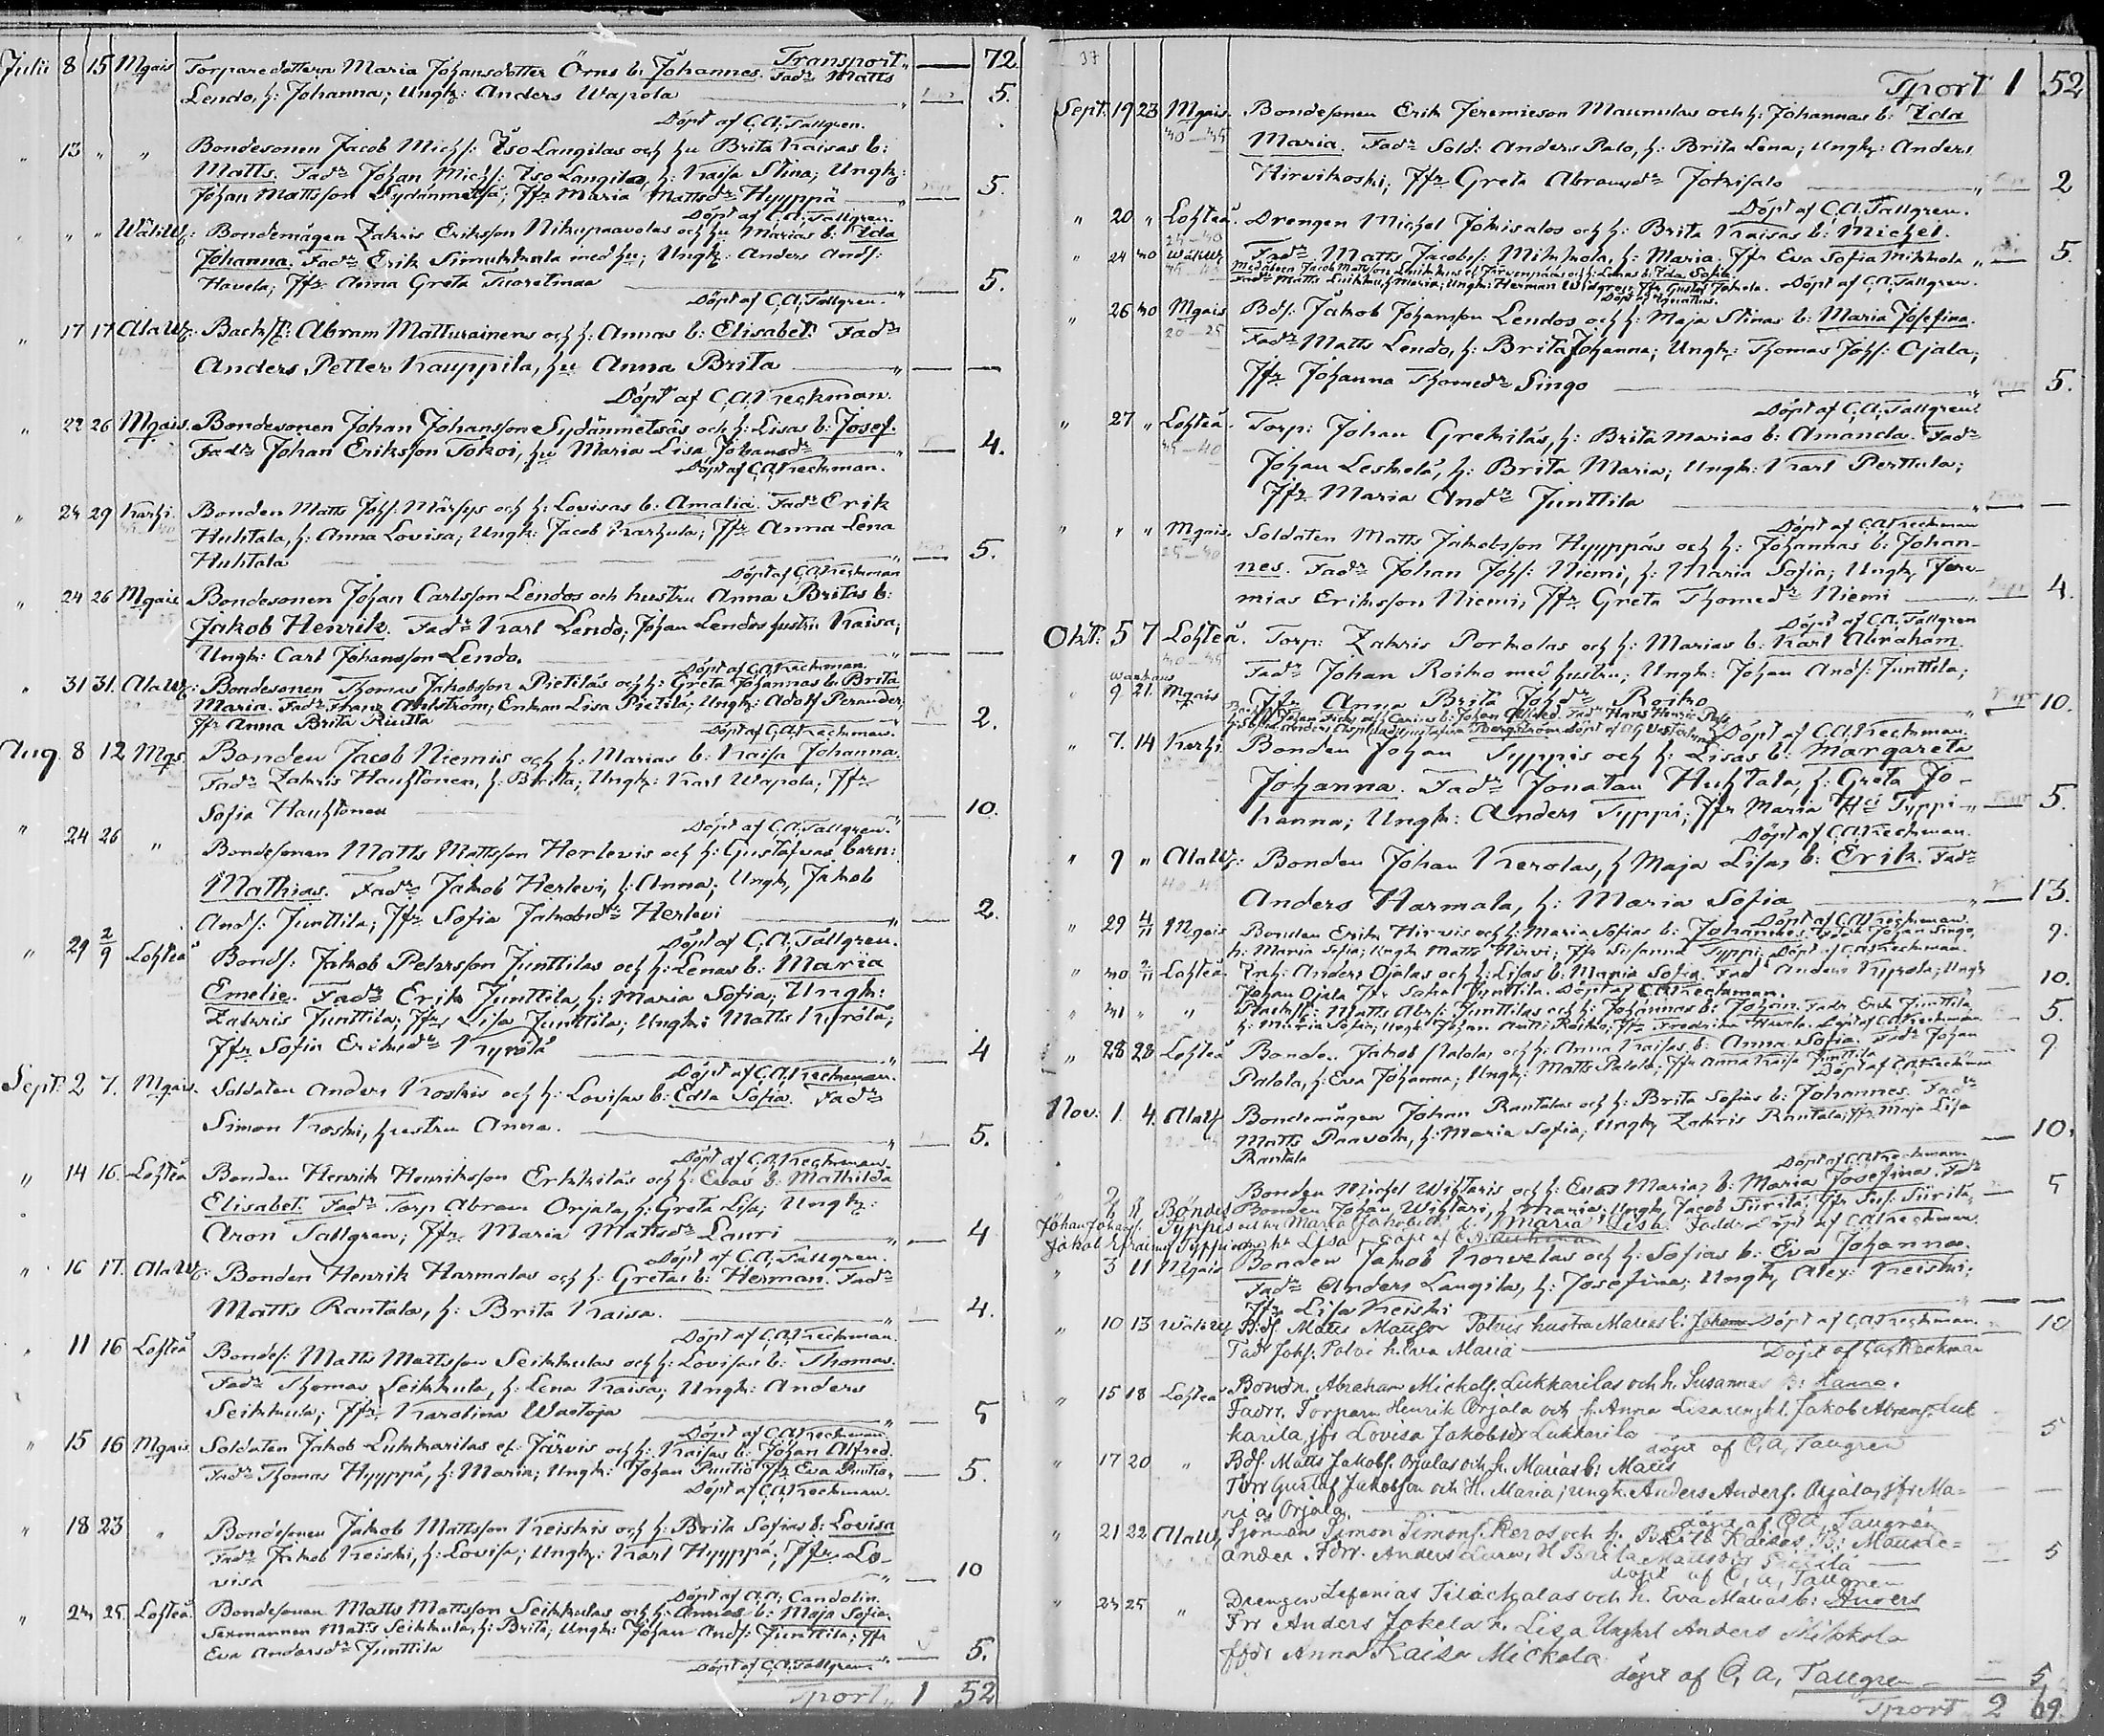 Transport " — 72
Julii 8 15 Mgais Torparedottern Maria Johansdotter Örns b: Johannes. Fadr Matts
Lendo, h: Johanna; Ungk: Anders Wapola " — 5.
Döpt af C.A. Tallgren.
" 13 " " Bondesonen Jacob Michs: Iso Langilas och hu Brita Kaisas b:
Matts. Fadr Johan Michs: Iso Langila, h: Kaisa Stina; Ungk:
Johan Mattsson Sydänmetsä; Jfr Maria Mattsdr Hyyppä " — 5.
Döpt af C.A. Tallgren.
" " " Bondemågen Zakris Eriksson Nikupaavolas och hu Marias b: Ida
Johanna. Fadr Erik Simukkala med hu; Ungk: Anders Ands:
Havela; Jfr Anna Greta " — 5.
Döpt af C.A. Tallgren.
" 17 17 AlaW: Backst: Abram Matturainens och h: Annas b: Elisabet. Fadr
Anders Petter Kauppila, hu Anna Brita " — —
Döpt af C.A. Keckman.
" 22 26 Mgais. Bondesonen Johan Johansson Sydänmetsäs och h: Lisas b: Josef.
Fadr Johan Eriksson Tokoi, hu Maria Lisa Johansdr " — 4.
Döpt af C.A. Keckman.
" 24 29 Karhi. Bonden Matts Johs: Märsys och h: Lovisas b: Amalia. Fadr Erik
Huhtala, h: Anna Lovisa; Ungk: Jacob Karhula; Jfr Anna Lena
Huhtala " — 5.
Döpt af C.A. Keckman
" 24 26 Mgais Bondesonen Johan Carlsson Lendos och hustru Anna Britas b:
Jakob Henrik. Fadr Karl Lendo; Johan Lendos hustru Kaisa;
Ungk: Carl Johansson Lendo. " — —
Döpt af C.A. Keckman.
" 31 31. AlaW: Bondesonen Thomas Jakobsson Pietiläs och h: Greta Johannas b: Brita
Maria. Fadr Franz Ahlström; Enkan Lisa Pietilä; Ungk: Adolf Pernander,
Jfr Anna Brita Riutta — 2.
Döpt af C.A. Keckman.
Aug. 8 12 Mgs. Bonden Jacob Niemis och h: Marias b: Kaisa Johanna.
Fadr Zakris Hauhtonen, h: Britta; Ungk: Karl Wapola; Jfr
Sofia Hauhtonen 10.
Döpt af C.A. Tallgren.
" 24 26 " Bondesonen Matts Mattsson Herlevis och h: Gustafvas barn:
Mathias. Fadr Jakob Herlevi, h: Anna; Ungk, Jakob
Ands: Junttila; Jfr Sofia Jakobsdr Herlevi " 2.
Döpt af C.A. Tallgren.
" 29 2/9 Lohteå Bonds: Jakob Pehrsson Junttilas och h: Lenas b: Maria
Emelie. Fadr Erik Junttila, h: Maria Sofia; Ungk:
Zakris Junttila; Jfr Lisa Junttila; Ungk: Matts Kyrölä;
Jfr Sofia Eriksdr Kyrölä " — 4
Döpt af C.A. Keckman.
Sept. 2 7. Mgais. Soldaten Anders Koskis och h: Lovisas b: Edla Sofia. Fadr
Simon Koski, hustru Anna. " 5.
Döpt af C.A. Keckman.
" 14 16. Lohteå Bonden Henrik Henriksson Erkkiläs och h: Evas b: Mathilda
Elisabet. Fadr Torp Abram Orjala, h: Greta Lisa; Ungk:
Aron Sallgren; Jfr Maria Mattsdr Lauri " 4
Döpt af C.A. Tallgren.
" 16 17. AlaW: Bonden Henrik Harmalas och h: Gretas b: Herman. Fadr
Matts Rantala, h: Brita Kaisa. " — 4.
Döpt af C.A. Keckman.
" 11 16 Lohteå Bondes: Matts Mattsson Seikkulas och h: Lovisas b: Thomas.
Fadr Thomas Seikkula, h: Lena Kaisa; Ungk: Anders
Seikkula; Jfr Karolina Wastoja " — 5
Döpt af C.A. Keckman.
" 15 16 Mgais. Soldaten Jakob Lukkarilas el: Järvis och h: Kaisas b: Johan Alfred.
Fadr Thomas Hyyppä, h: Maria; Ungk: Johan Puutio Jfr Eva Puutio, — 5.
Döpt af C.A. Keckman.
" 18 23 " Bondesonen Jakob Mattsson Keiskis och h: Brita Sofias b: Lovisa
Fadr Jakob Keiski, h: Lovisa; Ungk: Karl Hyyppä; Jfr Lo-
visa " — 10
Döpt af Candolin.
" 24 25. Lohteå Bondesonen Matts Mattsson Seikkulas och h: Annas b: Maja Sofia.
Sexmannen Matts Seikkula, h: Brita; Ungk: Johan Ands: Junttila; Jfr
Eva Andersdr Junttila " — 5.
Döpt af C.A. Tallgren.
Tport " 1 52
37
Tport 1 52
Sept. 19 23 Mgais. Bondesonen Erik Jeremieson Maunulas och h: Johannas b: Ida
Maria. Fadr Sold: Anders Palo, h: Brita Lena; Ungk: Anders
Hirvikoski; Jfr Greta Abramsdr Jokisalo " — 2
Döpt af C.A. Tallgren.
" 20 " Lohteå. Drengen Michel Jokisalos och h: Brita Kaisas b: Michel.
Fadr Matts Jacobs: Mikkola, h: Maria. Jfr Eva Sofia Mikkola " — 5.
" 24 30
Döpt af C.A. Tallgren.
" 26 30 Mgais Bds: Jakob Johansson Lendos och h: Maja Stinas b: Maria Josefina.
Fadr Matts Lendo, h: Brita Johanna; Ungk: Thomas Johs: Ojala;
Jfr Johanna Thomasdr Singo " 5.
Döpt af C.A. Tallgren.
" 27 " Lohteå. Torp: Johan Grekiläs, h: Brita Marias b: Amanda. Fadr
Johan Leskelä, h: Brita Maria; Ungk: Karl Perttula;
Jfr Maria Andr Junttila " — —
Döpt af C.A. Keckman
" " " Mgais. Soldaten Matts Jakobsson Hyyppäs och h: Johannas b: Johan-
nes. Fadr Johan Johs: Niemi, h: Maria Sofia; Ungk, Jere-
mias Eriksson Niemi, Jfr Greta Thomasdr Niemi " — 4.
Döpt af C.A. Tallgren
Okt. 5 7 Lohteå. Torp: Zakris Porkolas och h: Marias b: Karl Abraham.
Fadr Johan Roiko med hustru; Ungk: Johan Ands: Junttila;
Jfr Anna Brita Johsdr Roiko " 10.
9 21. Mgais
Döpt af C.A. Keckman.
" 7. 14 Karhi. Bonden Johan Typpis och h: Lisas b: Margareta
Johanna. Fadr Jonatan Huhtala, h: Greta Jo-
hanna; Ungk: Anders Typpi; Jfr Maria Typpi " — 5.
Döpt af C.A. Keckman.
" 9 " AlaW: Bonden Johan Kerolas, h Maja Lisas b: Erik. Fadr
Anders Harmala, h: Maria Sofia " — 13.
Döpt af C.A. Keckman.
" 29 4/11 Mgais Bonden Erik Hirvis och h: Maria Sofias b: Johannes. Fadr Johan Singo, 9.
h: Maria Sofia; Ungk Matts Hirvi; Jfr Susanna Typpi. Döpt af C.A. Keckman.
" 30 2/11 Lohteå. Anders Ojalas och h: Lisas b: Maria Sofia. Fadr Anders Kyrölä; Ungk
Johan Ojala Jfr Junttila. Döpt af C.A. Keckman. 10.
" 31 " " Matts Abrs: Junttilas och h: Johannas b: Johan. Fadr Erik Junttila,
h: Maria Sofia; Ungk Johan Roiko, Jfr Fredrika Havela. Döpt af C.A. Keckman 5.
" 28 28 Lohteå Bonden Jakob Palolas och h: Anna Kaisas b: Anna Sofia. Fadr Johan
Palola, h: Eva Johanna; Ungk: Matts Palola; Jfr Anna Kaisa Junttila 9
Döpt af C.A. Keckman
Nov. 1. 4. AlaW Bondemågen Johan Rantalas och h: Brita Sofias b: Johannes. Fadr
Matts Paavola, h: Maria Sofia; Ungk Zakris Rantala; Jfr Maja Lisa
Rantala — 10.
Döpt af C.A. Keckman
Bonden Michel Wihtaris och h: Evas Marias b: Maria Josefina. Fadr
Bonden Johan Wihtari, h: Maria; Ungk, Jacob Siirilä; Jfr Siirilä, — 5
Döpt af C.A. Keckman.
" 5 11 Mgais Bonden Jakob Korvelas och h: Sofias b: Eva Johanna.
Fadr Anders Langila, h: Josefina; Ungk, Alex: Keiski;
Jfr Lisa Keiski " — —
" 10 13 Matts Palvis hustru Marias b: Johan Döpt af C.A. Keckman. 10
Fadr Johs: Palvi Maria Döpt af C.A. Keckman
" 15 18 Lohteå Bondn. Abraham Mickels. Lukkarilas och h. Susannas b: Sanna.
Fadrr. Torparn Henrik Orjala och h. Anna Lisa ungkl. Jakob Abrams. Luk
karila jfr Lovisa Jakobsdr Lukkarila 5
döpt af C, A, Tallgren
" 17 20 " Bds. Matts Jakobs. Orjalas och h. Marias b: Matts
Gustaf Jakobsson och H. Maria; ungk. Anders Anders. Orjala, jfr Ma-
ria Orjala. — —
döpt af C.A. Tallgren
" 21 22 AlaW, Sjöman Simon Simons. Keros och h. Brita Kaisas b:
Anders h Brita 5
döpt af C, A, Tallgren
" 24 25 " Drengen Zefanias och h. Eva Marias b: Anders
Frr Anders Jokela h. Lisa Ungkrl Anders Mikkola
Anna Kaisa Mickola
döpt af C, A, Tallgren — 5
Tport 2 69.